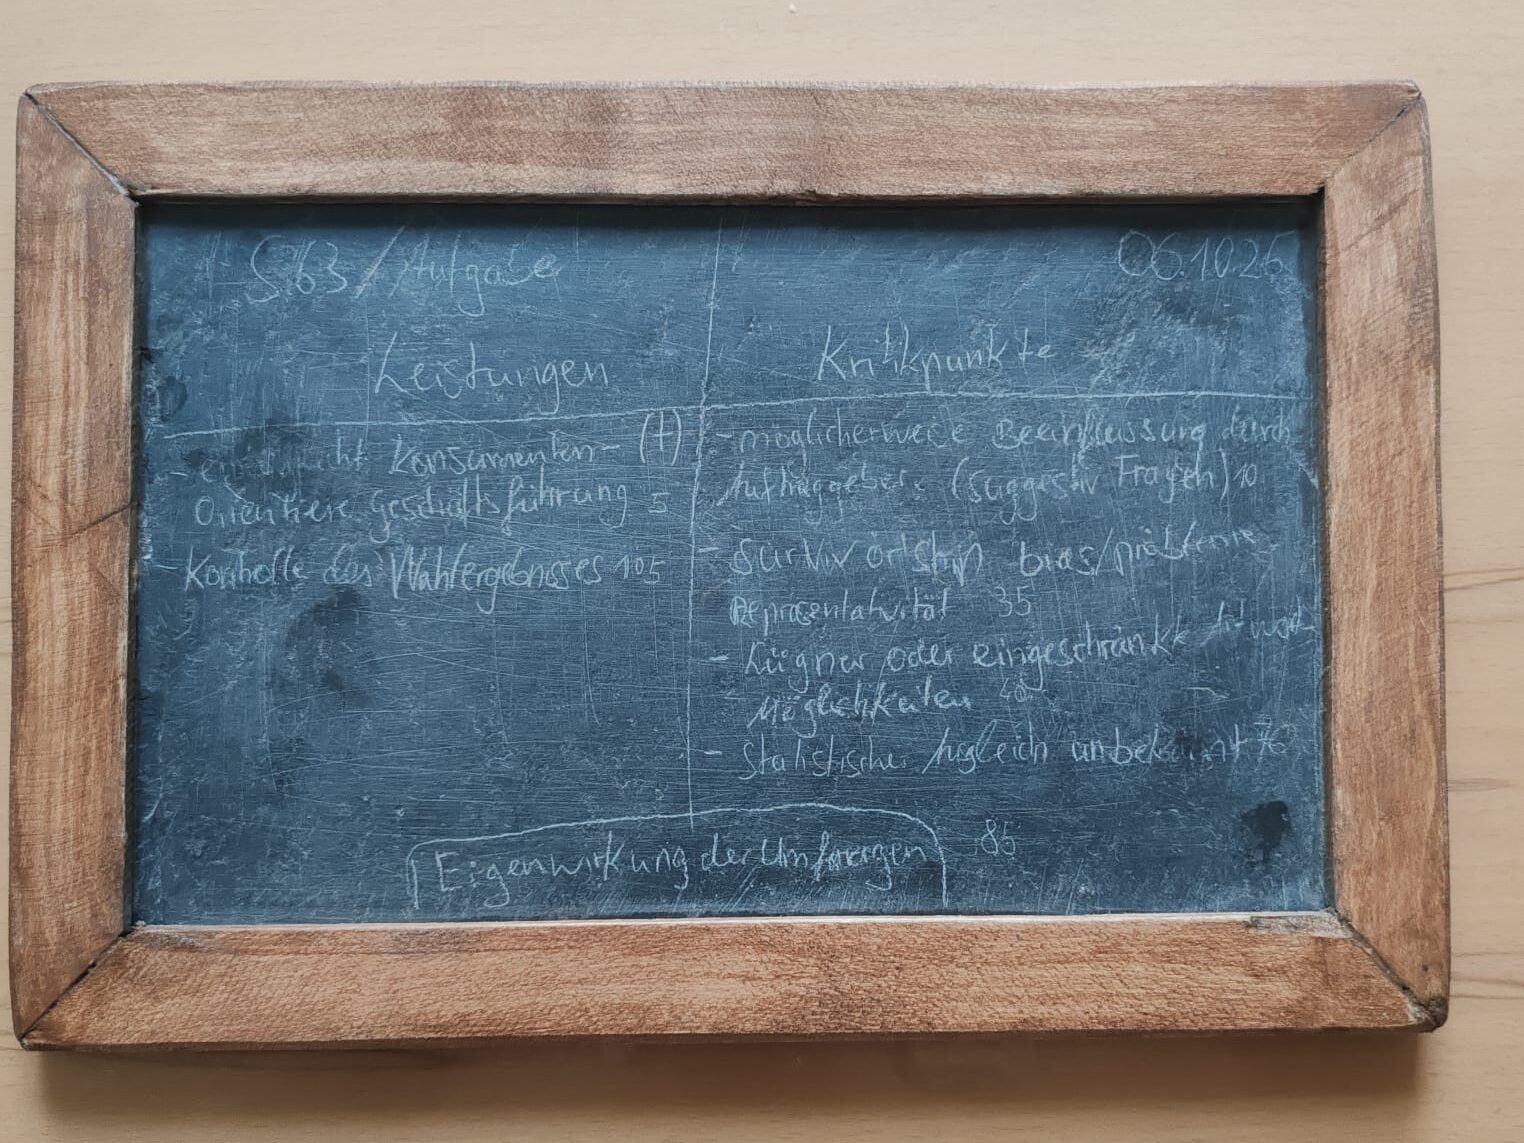 S.63/Aufgabe
06.10.25
Leistungen
- ermöglicht Konsumenten- (+)
Orientierte Geschäftsführung 5
- Kontrolle des Wahlergebnisses 105
Kritikpunkte
- möglicherweise Beeinflussung durch
Auftraggeber. (Suggestiv Fragen) 10
- Survivorship bias/
Repräsentativität 35
- Lügner oder eingeschränkte
Möglichkeiten
- Statistischer unbekannt 76
Eigenwirkung der Umfragen 85